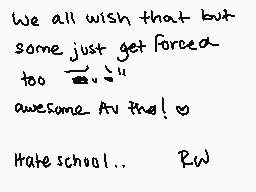 We all wish that but
some just get forced
too
awesome Av tho! ♡
Hate school..   RW